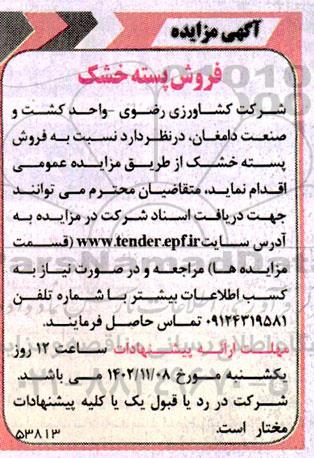 آگهی مزایده
فروش پسته خشک
شرکت کشاورزی رضوی -واحد کشت و
صنعت دامغان، درنظردارد نسبت به فروش
پسته خشک از طریق مزایده عمومی
اقدام نماید، متقاضیان محترم می توانند
جهت دریافت اسناد شرکت در مزایده به
آدرس سایت www.tender.epf.ir (قسمت
مزایده ها) مراجعه و در صورت نیاز به
کسب اطلاعات بیشتر با شماره تلفن
۰۹۱۲۴۳۱۹۵۸۱ تماس حاصل فرمایند.
مهلت ارائه پیشنهادات ساعت ۱۲ روز
یکشنبه مورخ ۱۴۰۲/۱۱/۰۸ می باشد.
شرکت در رد یا قبول یک یا کلیه پیشنهادات
مختار است.
۵۳۸۱۳